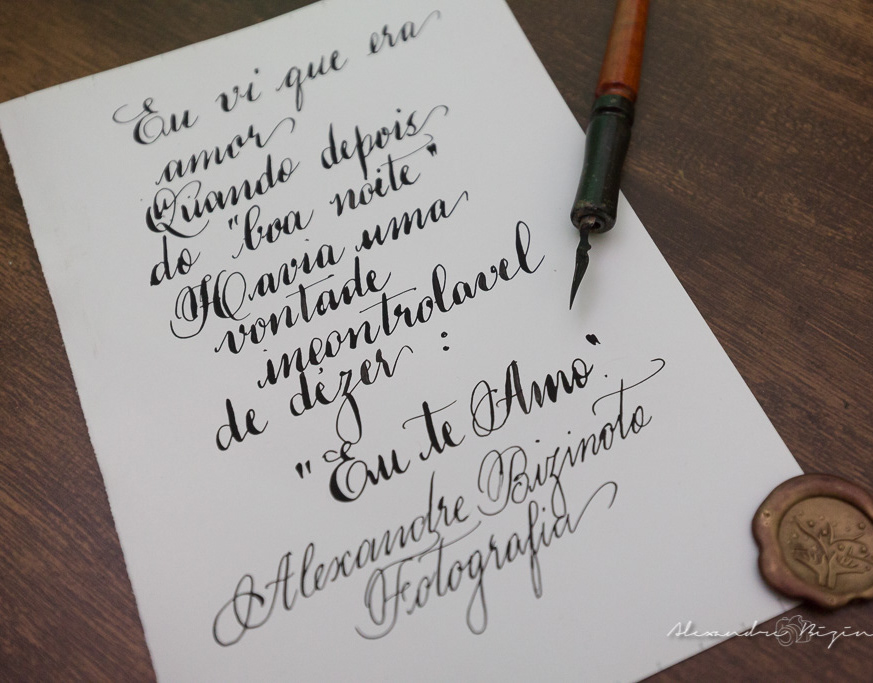 Eu vi que era
amor
Quando depois
do "boa noite"
Havia uma
vontade
incontrolavel
de dizer :
"Eu te Amo".
Alexandre Bizinoto
Fotografia
Alexandre Bizin